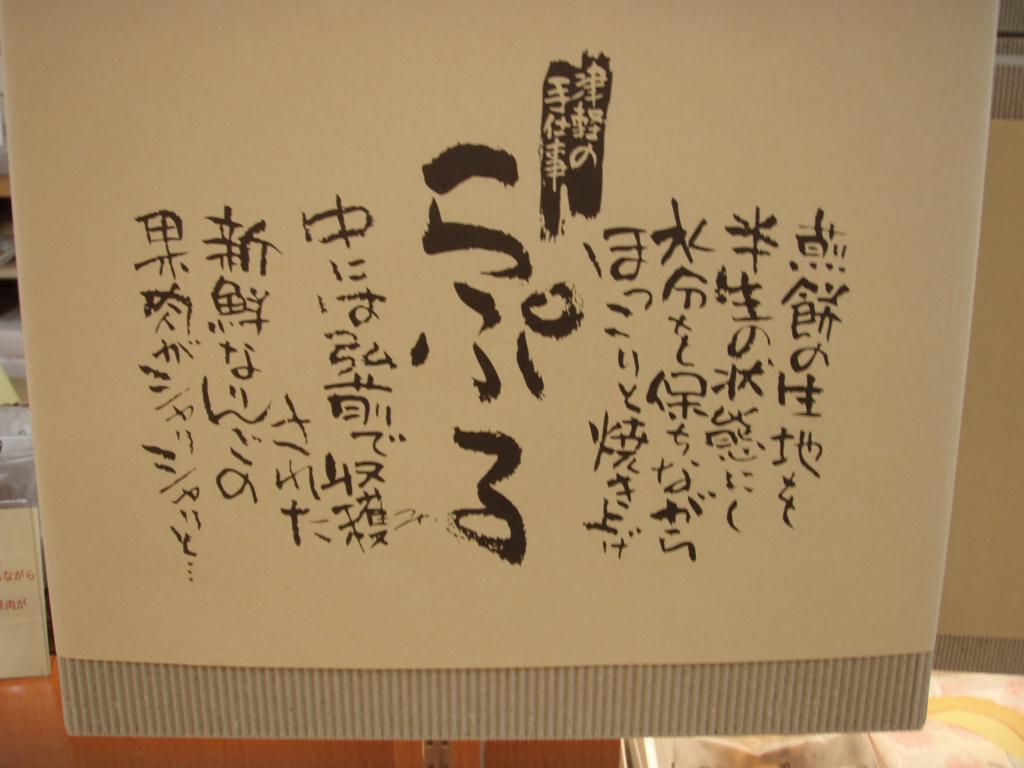 煎餅の生地を
半生の状態にし
水分を保ちながら
ほっこりと焼き上げ
津軽の
手仕事
らぷる
中には弘前で収穫
された
新鮮なりんごの
果肉がジャリッジャリッと…
ながら
果肉が